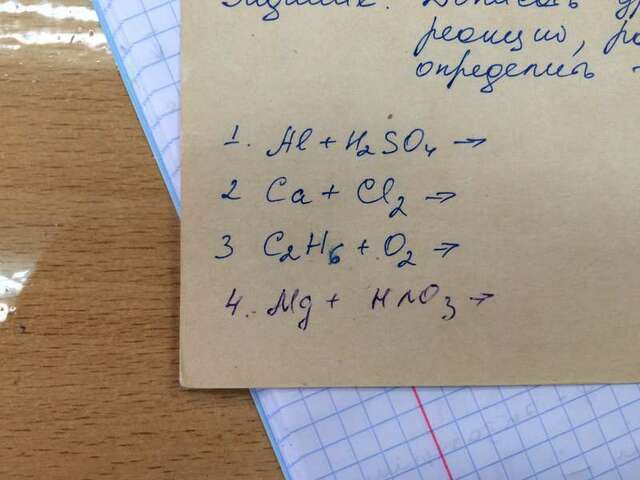 Задание: Дописать
реакцию,
определить
1. Al + H₂SO₄ →
2 Ca + Cl₂ →
3 C₂H₆ + O₂ →
4. Mg + HNO₃ →